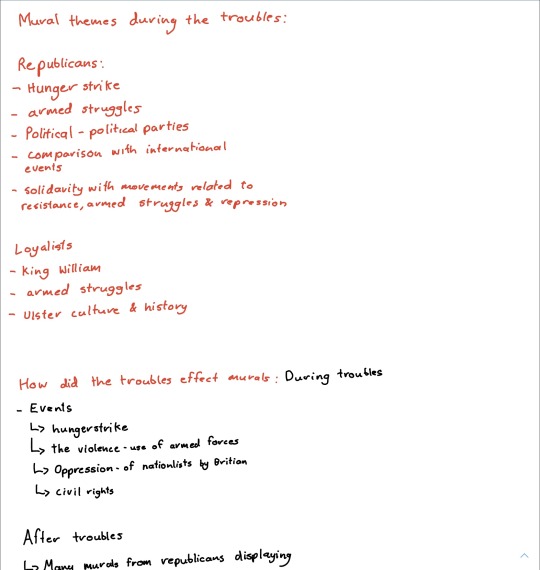 Mural themes during the troubles:
Republicans:
- Hunger strike
- armed struggles
- Political - political parties
- comparison with international
events
- solidarity with movements related to
resistance, armed struggles & repression
Loyalists
- King William
- armed struggles
- Ulster culture & history
How did the troubles effect murals: During troubles
- Events
↳ hungerstrike
↳ the violence - use of armed forces
↳ Oppression - of nationlists by Britian
↳ civil rights
After troubles
↳ Many murals from republicans displaying